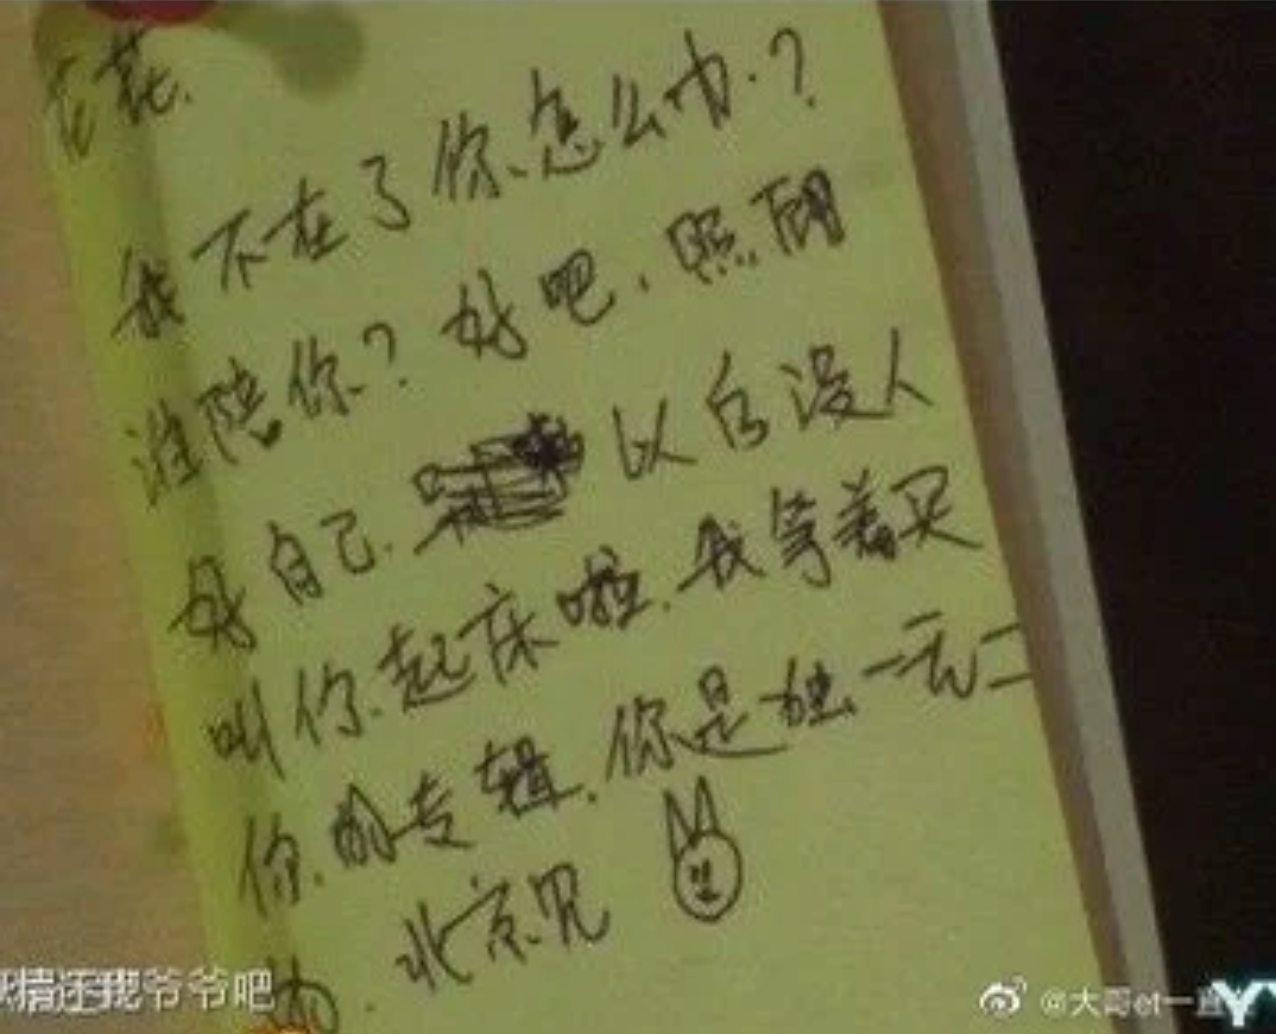 花花.
我不在了你怎么办.?
谁陪你?好吧.照顾
好自己.以后没人
叫你起床啦.我等着买
你的专辑.你是独一无二
的.北京见
情还我爷爷吧
@大哥et一直